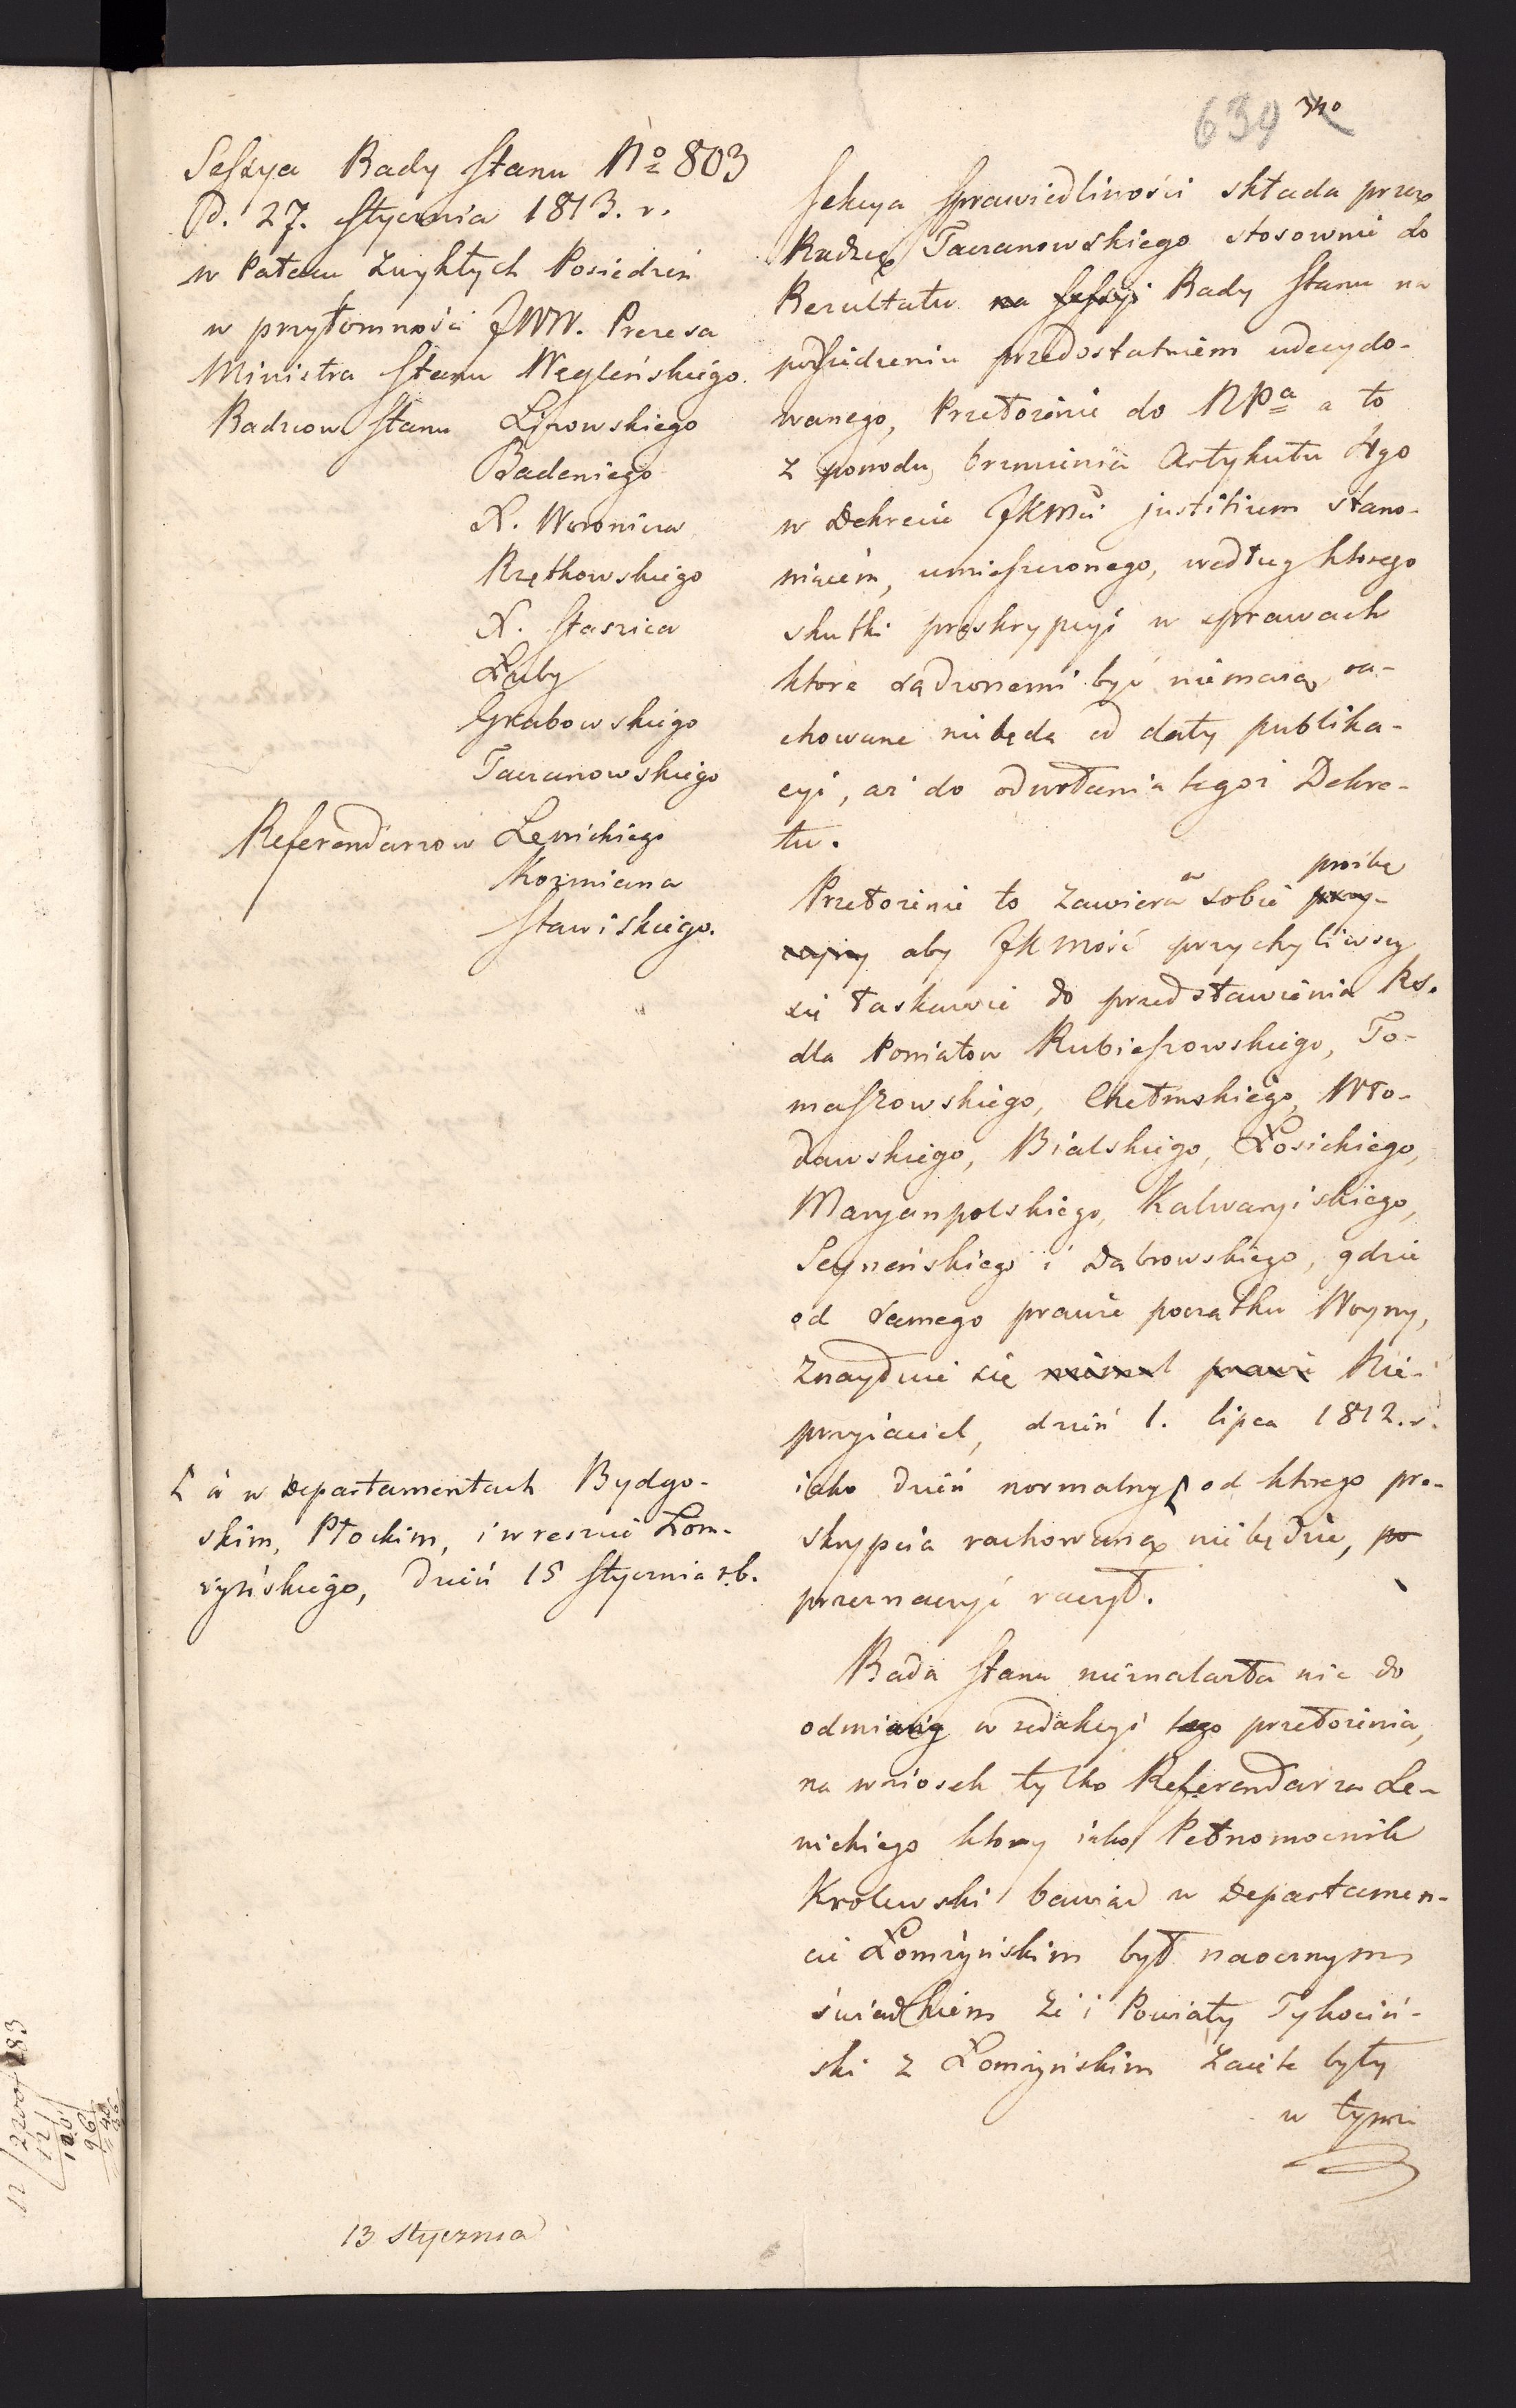 639 340
Sessya Rady Stanu No 803
D. 27. Stycznia 1813. r.
w Pałacu Zwykłych Posiedzeń
w przytomności JWW. Prezesa
Ministra Stanu Węgleńskiego.
Radzcow Stanu Lipowskiego
Badeniego
X. Woronicza
Rzętkowskiego
X. Staszica
Łuby
Grabowskiego
Taczanowskiego
Referendarzow Lewickiego
Kozmiana
Stawiskiego.
Sekcya Sprawiedliwości składa przez
Radzcę Taczanowskiego stosownie do
Rezultatu na Sessyi Rady Stanu na
posiedzeniu przedostatniem udecydo-
wanego, Przełożenie do NPa a to
z powodu brzmienia Artykułu 4go
w Dekrecie JKMci justitium stano-
wiącém, umieszczonego, według ktorego
skutki preskrypcyi w sprawach
ktore sądzonemi być niemaią, ra-
chowane niebędą od daty publika-
cyi, aż do odwołania tegoż Dekre-
tu.
Przełożenie to zawiera w sobie przy- prozbę
czyny aby JKMość przychyliwszy
się łaskawie do przedstawienia RS.
dla Powiatow Rubieszowskiego, To-
maszowskiego, Chełmskiego, Wło-
dawskiego, Bialskiego, Łosickiego,
Maryanpolskiego, Kalwaryiskiego,
Seyneńskiego i Dąbrowskiego, gdzie
od samego prawie początku Woyny,
znayduie się prawie Nie-
przyiaciel, dzień 1. lipca 1812. r.
iako dzień normalny od ktorego pre-
skrypcia rachowaną nie będzie, po
przeznaczyć raczył.
[ a w Departamentach Bydgo-
skim, Płockim, i wreszcie Łom-
żyńskiego, dzień 15 Stycznia r.b.
Rada Stanu nieznalazła nic do
odmiany w redakcyi tego przełożenia,
na wniosek tylko Referendarza Le-
wickiego ktory iako Pełnomocnik
Krolewski bawiąc w Departamen-
cie Łomżyńskim był naocznym
świadkiem że i Powiaty Tykociń-
ski z Łomżyńskim zaięte były
w tymże
13 Stycznia
12 / 2200 / 183
12
100
96
40
36